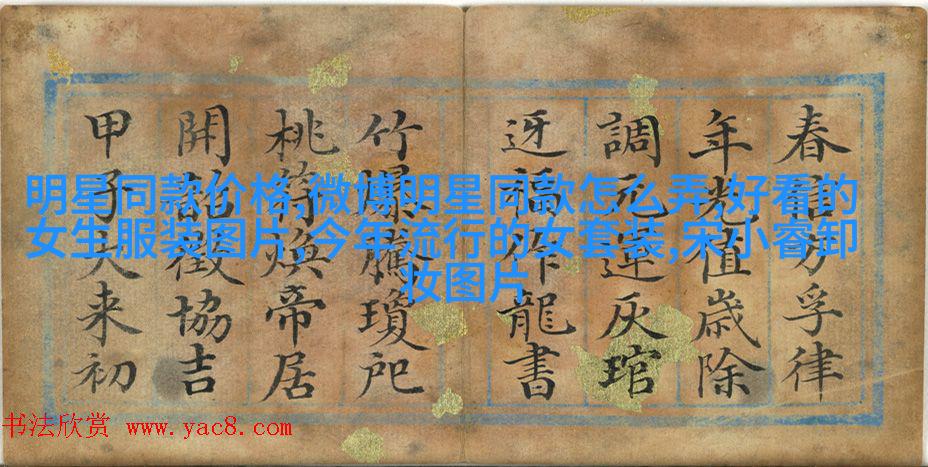 明星同款价格,微博明星同款怎么弄,好看的
女生服装图片,今年流行的女套装,宋小睿卸
妆图片
春信方孚律
年光值歲除
調元運灰琯
迓福作龍書
竹爆騰瓊戺
桃符煥帝居
開韶徵協吉
甲子来初
书法欣赏 www.yac8.com